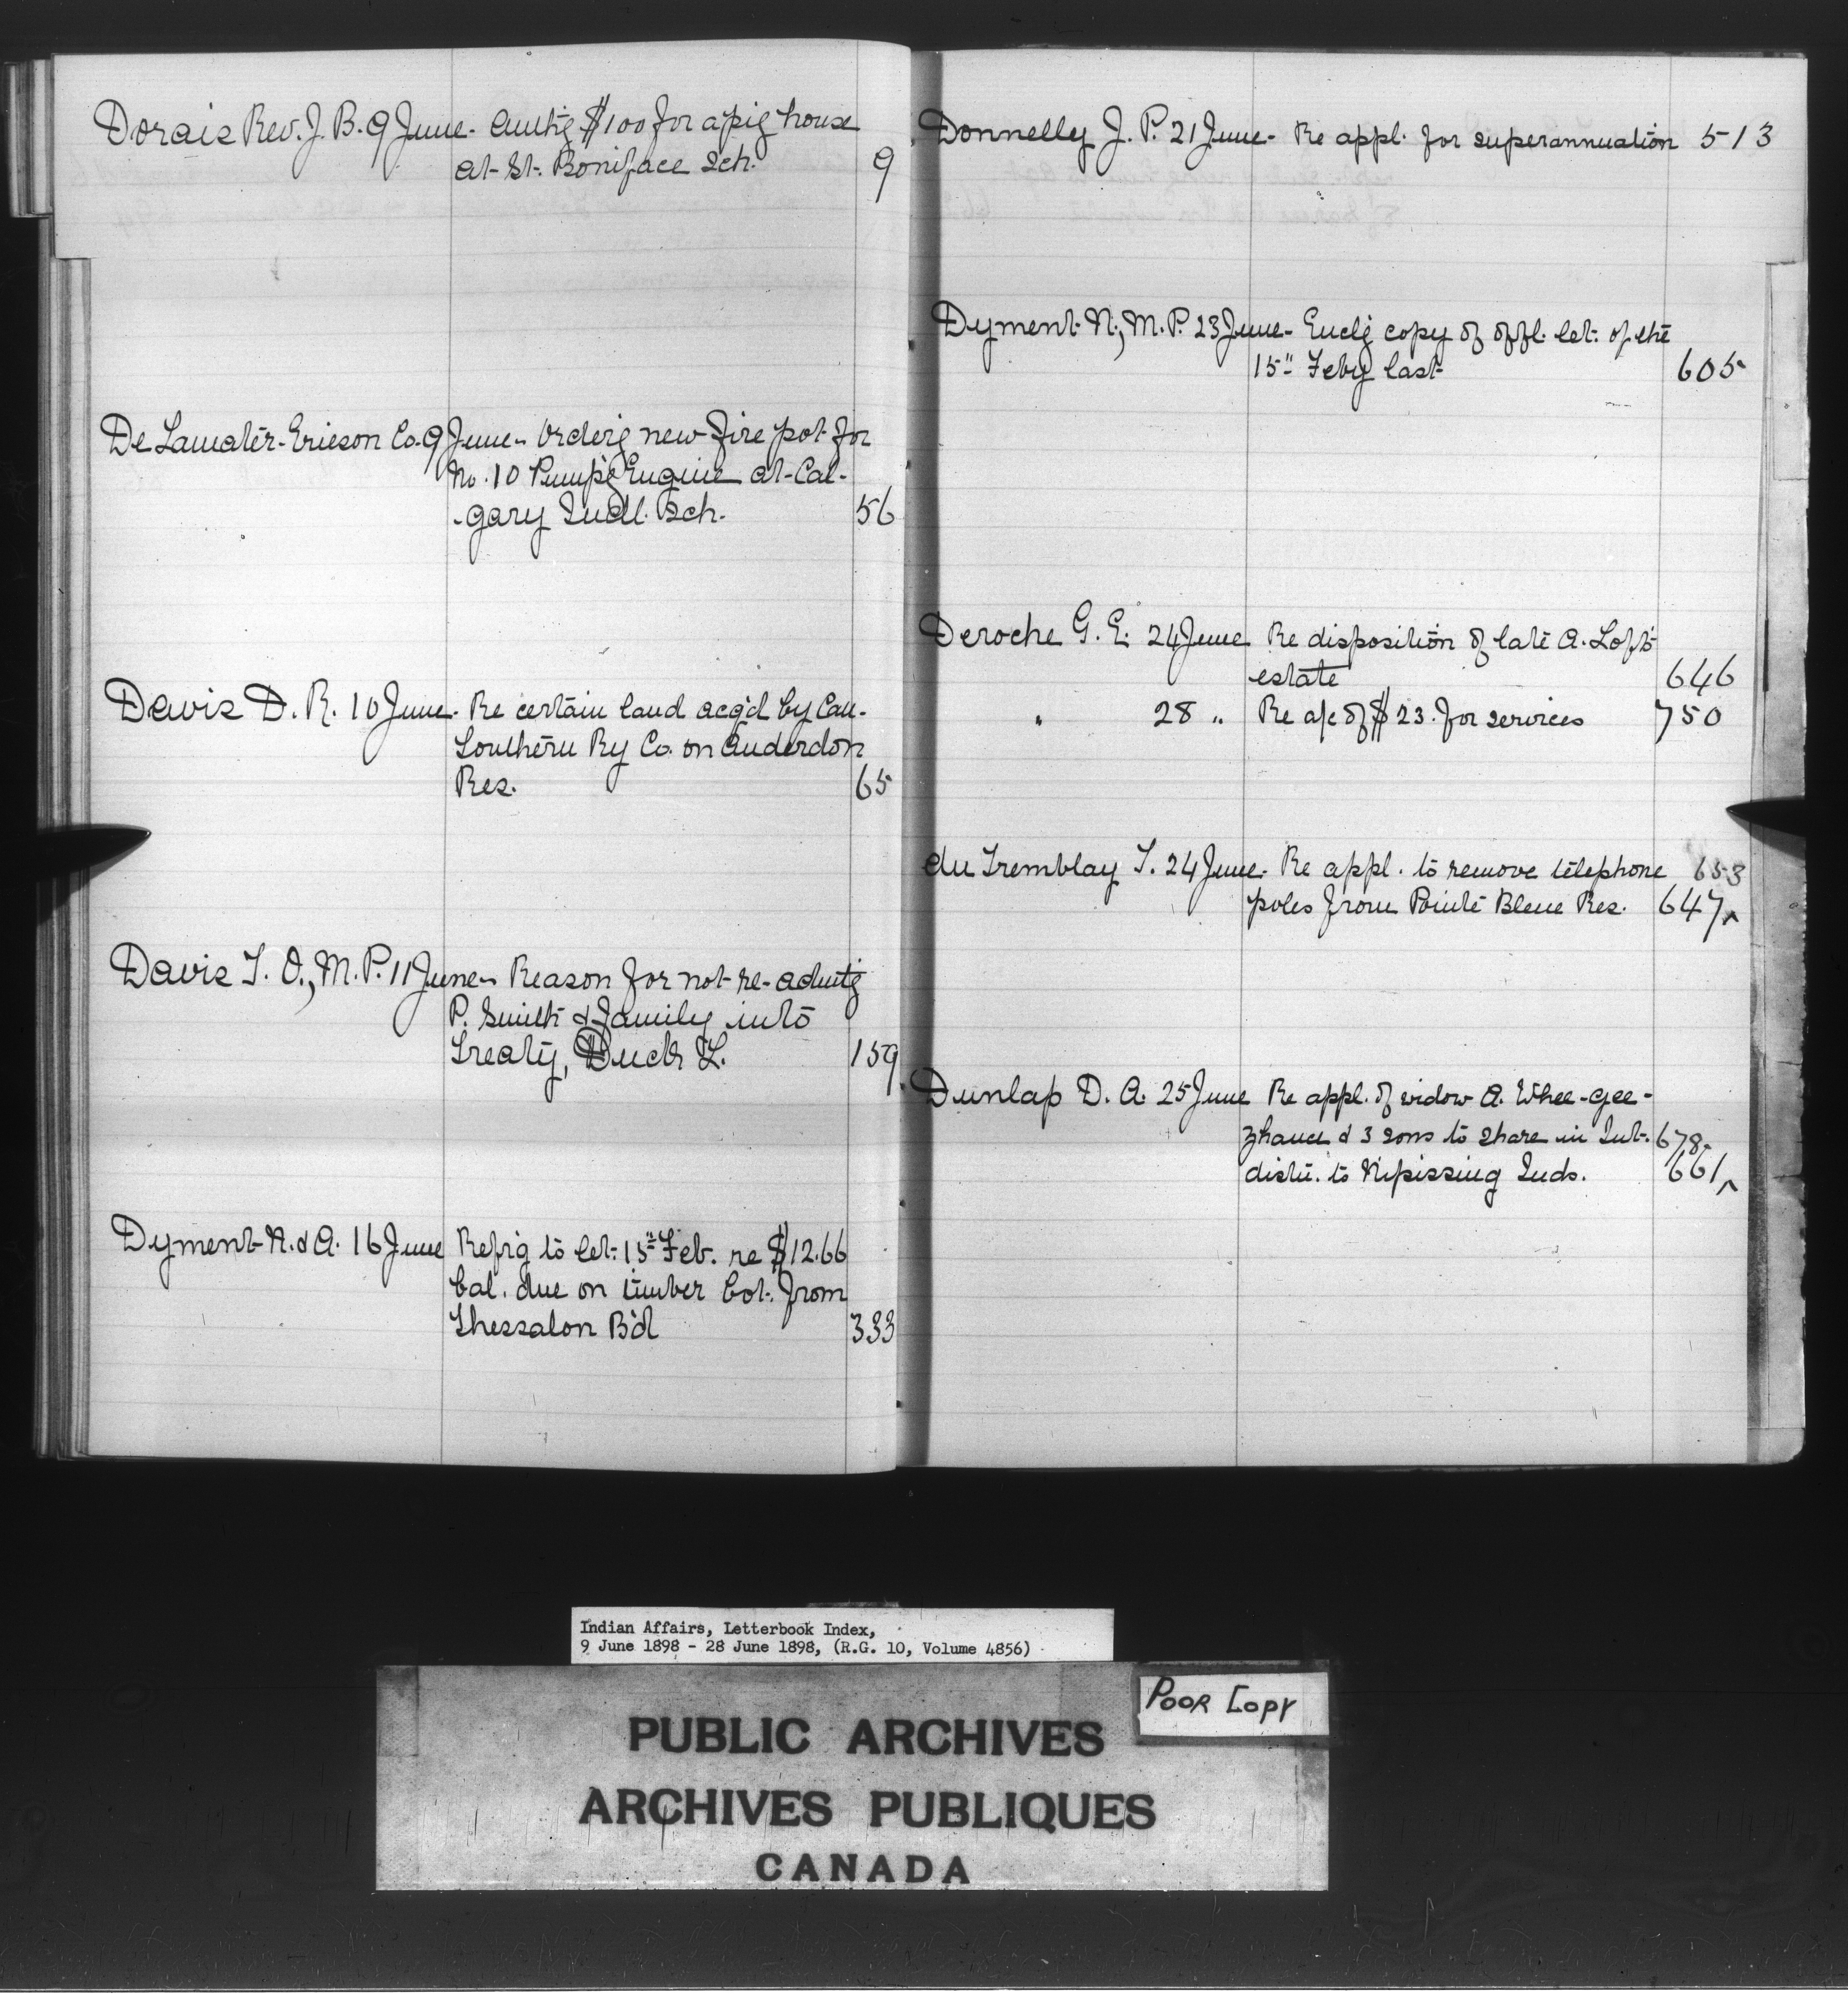 Dorais Rev. J. B. 9 June - Authg $100 for a pig house
at St. Boniface Sch. 9
De Lamater-Ericson Co. 9 June - Orderg new fire pot for
No. 10 Pumpg Engine at Cal-
-gary Indl. Sch. 56
Davis D. R. 10 June - Re certain land acq'd by Can.
Southern Ry Co. on Anderdon
Res. 65
Davis T. O., M. P. 11 June - Reason for not re-admitg
P. Smith & family into
Treaty, Duck L. 159
Dyment N. & A. 16 June Refrg to let. 15" Feb. re $12.66
bal. due on timber bot. from
Thessalon B'd 333
Donnelly J. P. 21 June - Re appl. for superannuation 513
Dyment N., M. P. 23 June - Enclg copy of offl. let. of the
15" Feby last 605
Deroche G. E. 24 June Re disposition of late A. Loft's
estate 646
" 28 " Re a/c of $23. for services 750
du Tremblay T. 24 June - Re appl. to remove telephone 653
poles from Pointe Bleue Res. 647
Dunlap D. A. 25 June Re appl. of widow A. Whee-gee-
zhance & 3 sons to share in Int. 678
distn. to Nipissing Inds. 661
Indian Affairs, Letterbook Index,
9 June 1898 - 28 June 1898, (R.G. 10, Volume 4856)
POOR COPY
PUBLIC ARCHIVES
ARCHIVES PUBLIQUES
CANADA